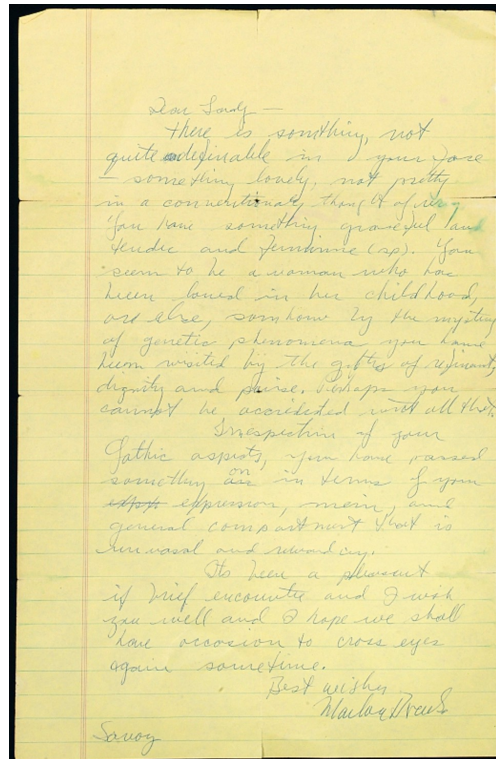 Dear Lady —
there is something, not
quite definable in your face
— something lovely, not pretty
in a conventionaly thought of way
You have something graceful and
tender and feminine (sp). You
seem to be a woman who has
been loved in her childhood,
or else, somhow by the mystery
of genetic phenomena you have
been visited by the gifts of refinment,
dignity and poise. Perhaps you
cannot be accredited with all that.
Irrespective of your
Gothic aspects, you have passed
something on in terms of your
expression, mein, and
general comportment that is
unusual and rewarding.
Its been a pleasant
if brief encounter and I wish
you well and I hope we shall
have occasion to cross eyes
again sometime.
Best wishes
Marlon Brando
Savoy